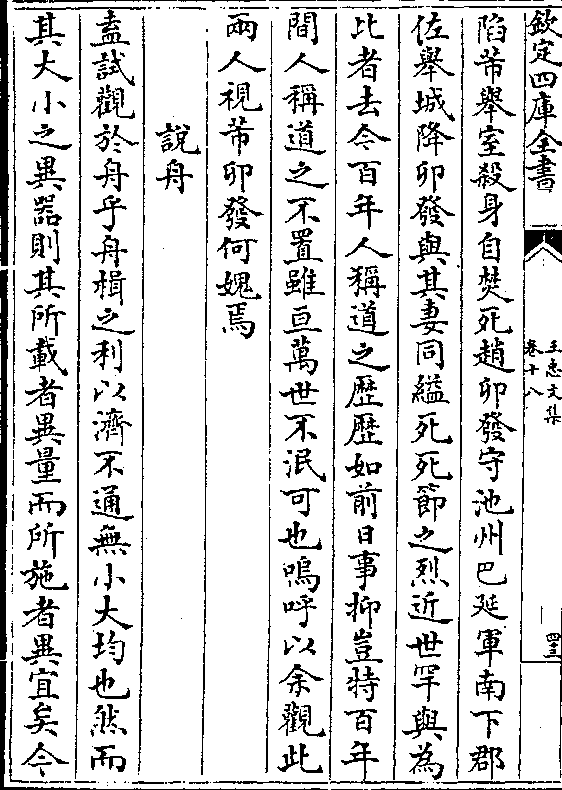 欽定四庫全書
王忠文集
卷十八
四三
陷芾舉室殺身自焚死趙卯發守池州巴延軍南下郡
佐舉城降卯發與其妻同縊死死節之烈近世罕與為
比者去今百年人稱道之歷歷如前日事抑豈特百年
間人稱道之不置雖亘萬世不泯可也嗚呼以余觀此
兩人視芾卯發何媿焉
說舟
盍試觀於舟乎舟楫之利以濟不通無小大均也然而
其大小之異器則其所載者異量而所施者異宜矣今